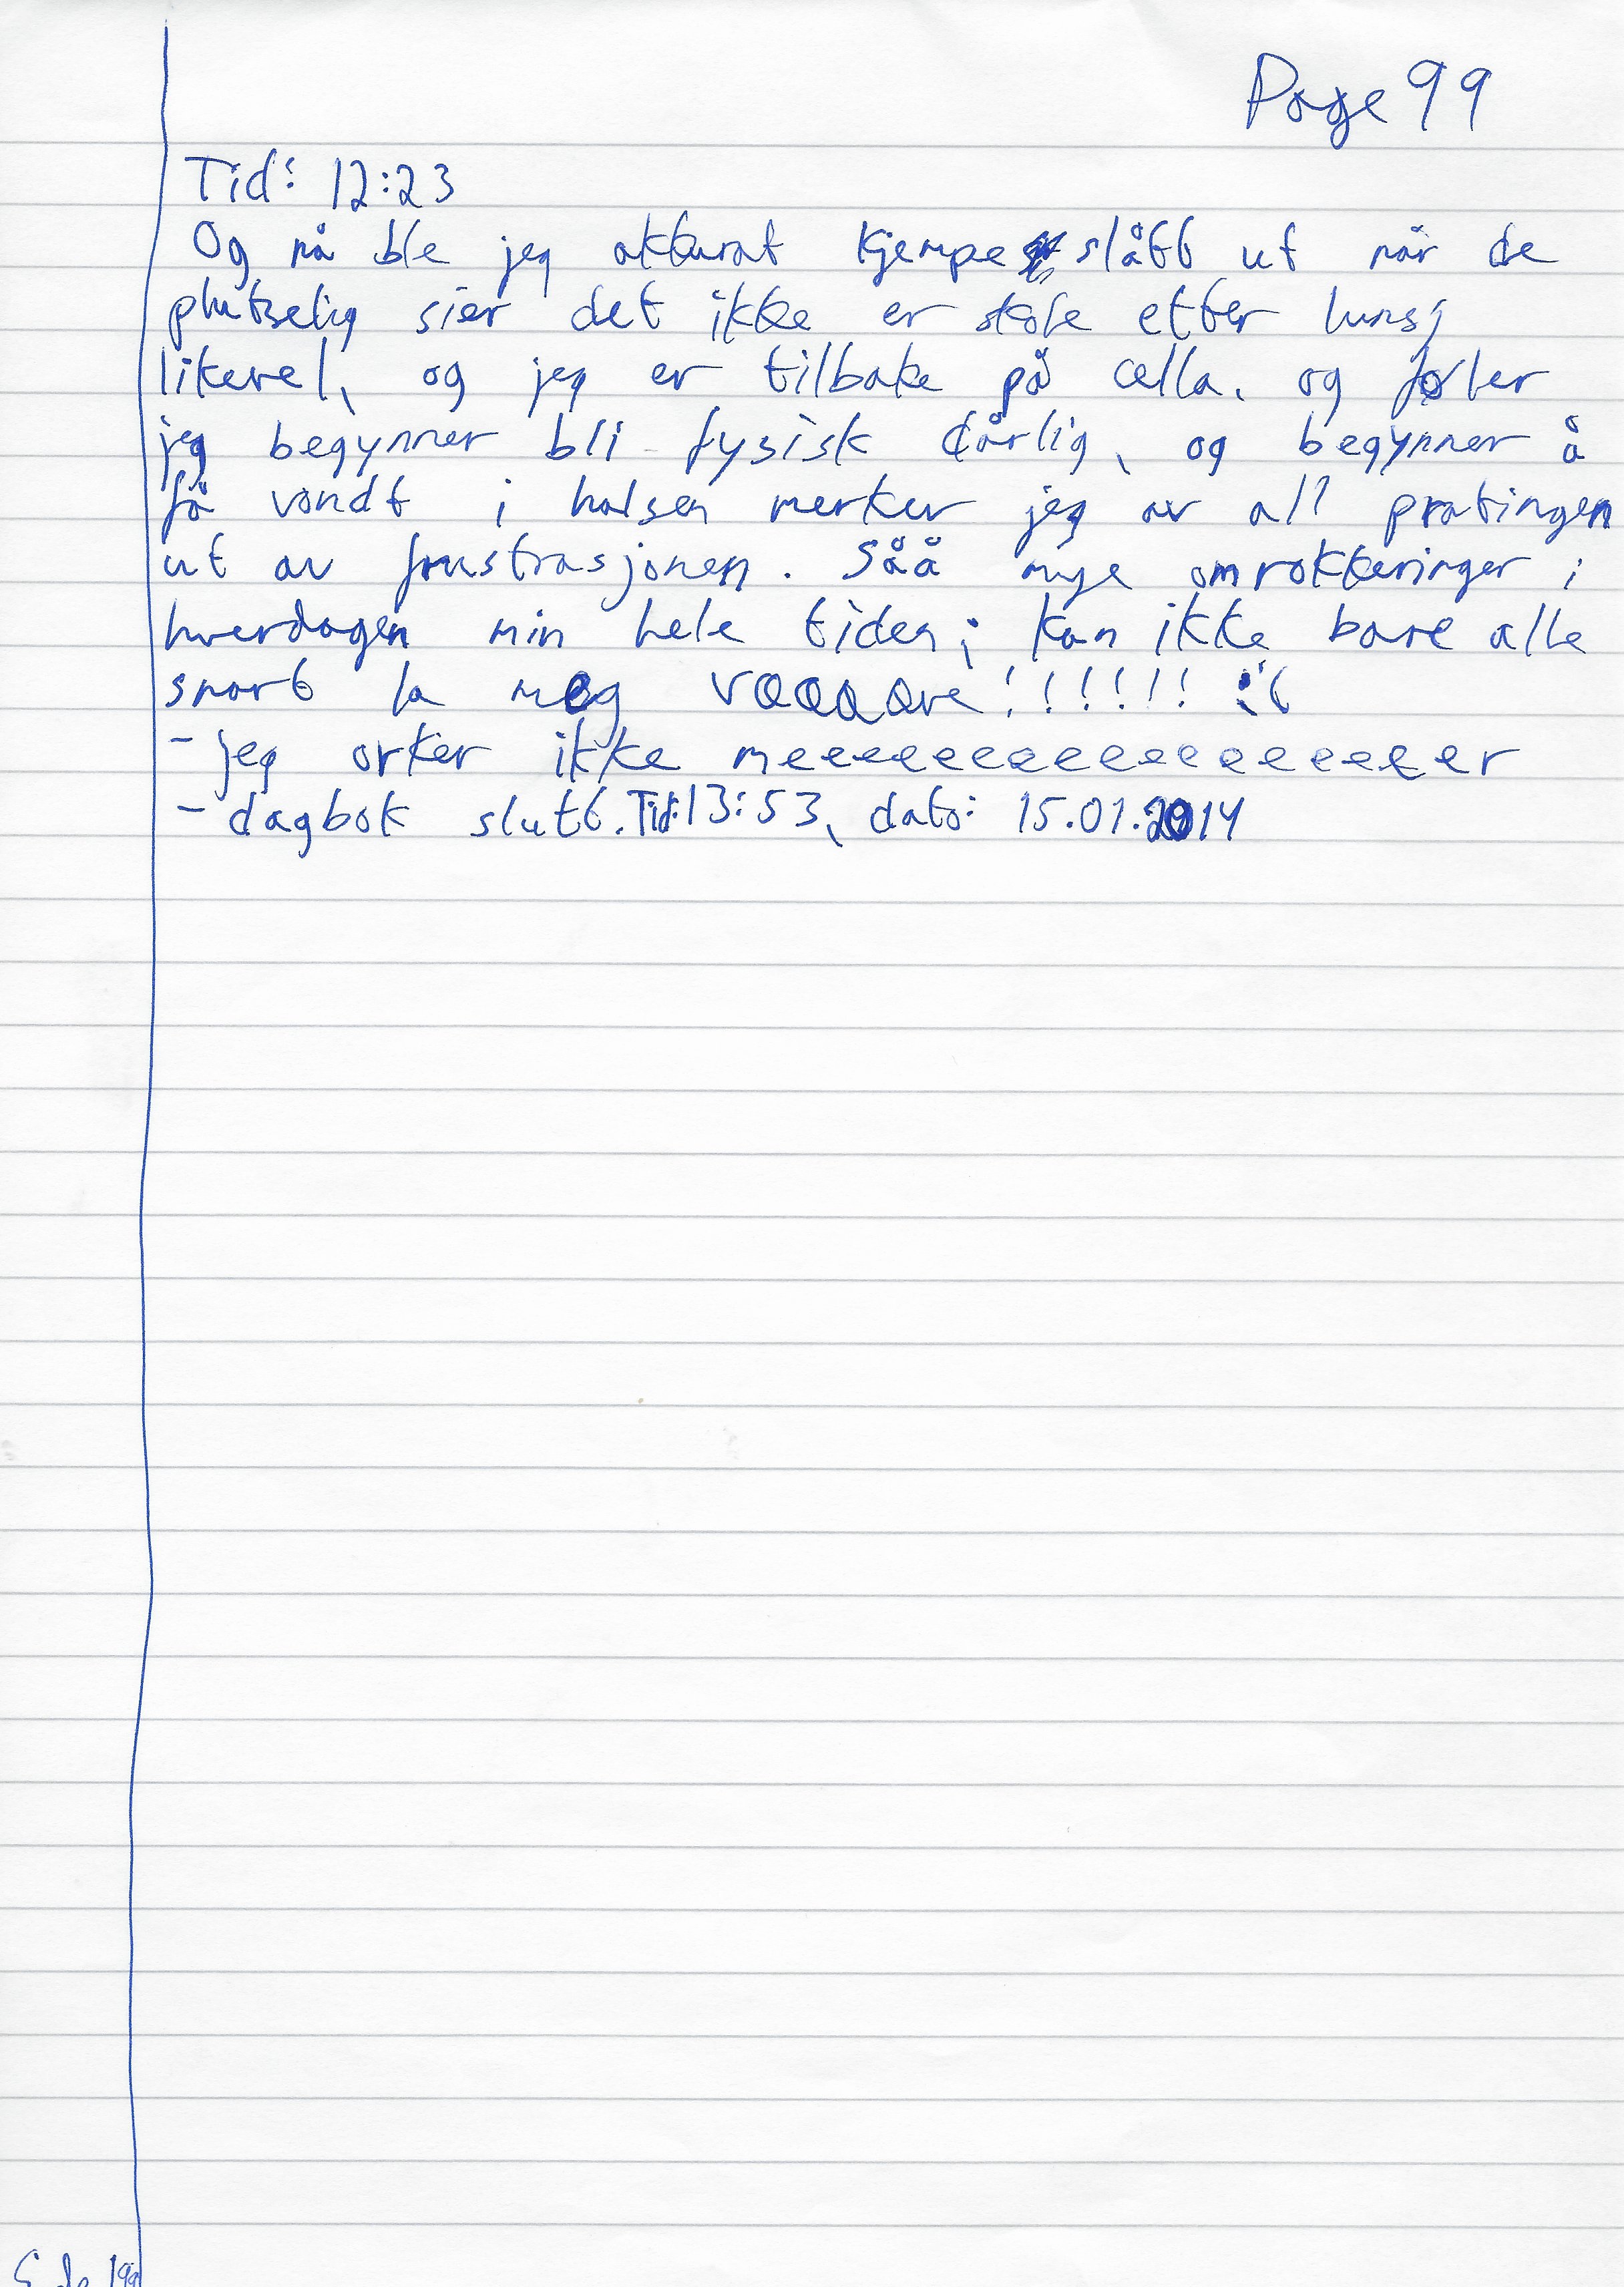 Page 99
Tid: 12:23
Og nå ble jeg akkurat kjempe slått ut når de
plutselig sier det ikke er skole etter lunsj
likevel, og jeg er tilbake på cella. og føler
jeg begynner bli fysisk dårlig, og begynner å
få vondt i halsen merker jeg av all pratingen
ut av frustrasjonen. Såå mye omrokkeringer i
hverdagen min hele tiden; kan ikke bare alle
snart la meg vaaaare!!!!!! :'(
- jeg orker ikke meeeeeeeeeeeeeeeeeer
- dagbok slutt. Tid: 13:53, dato: 15.01.2014